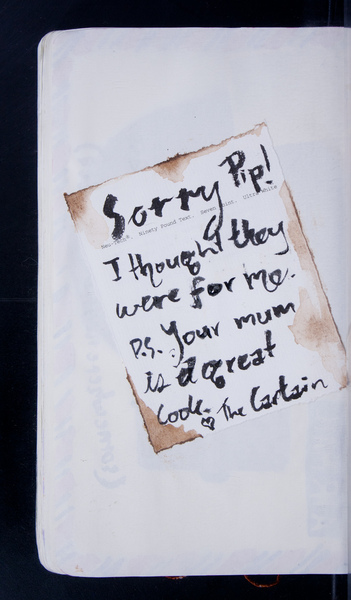 Sorry Pip!
Ninety Pound Text. Seven Point. Dirty White
I thought they
were for me.
P.S. Your mum
is a great
cook. The Captain